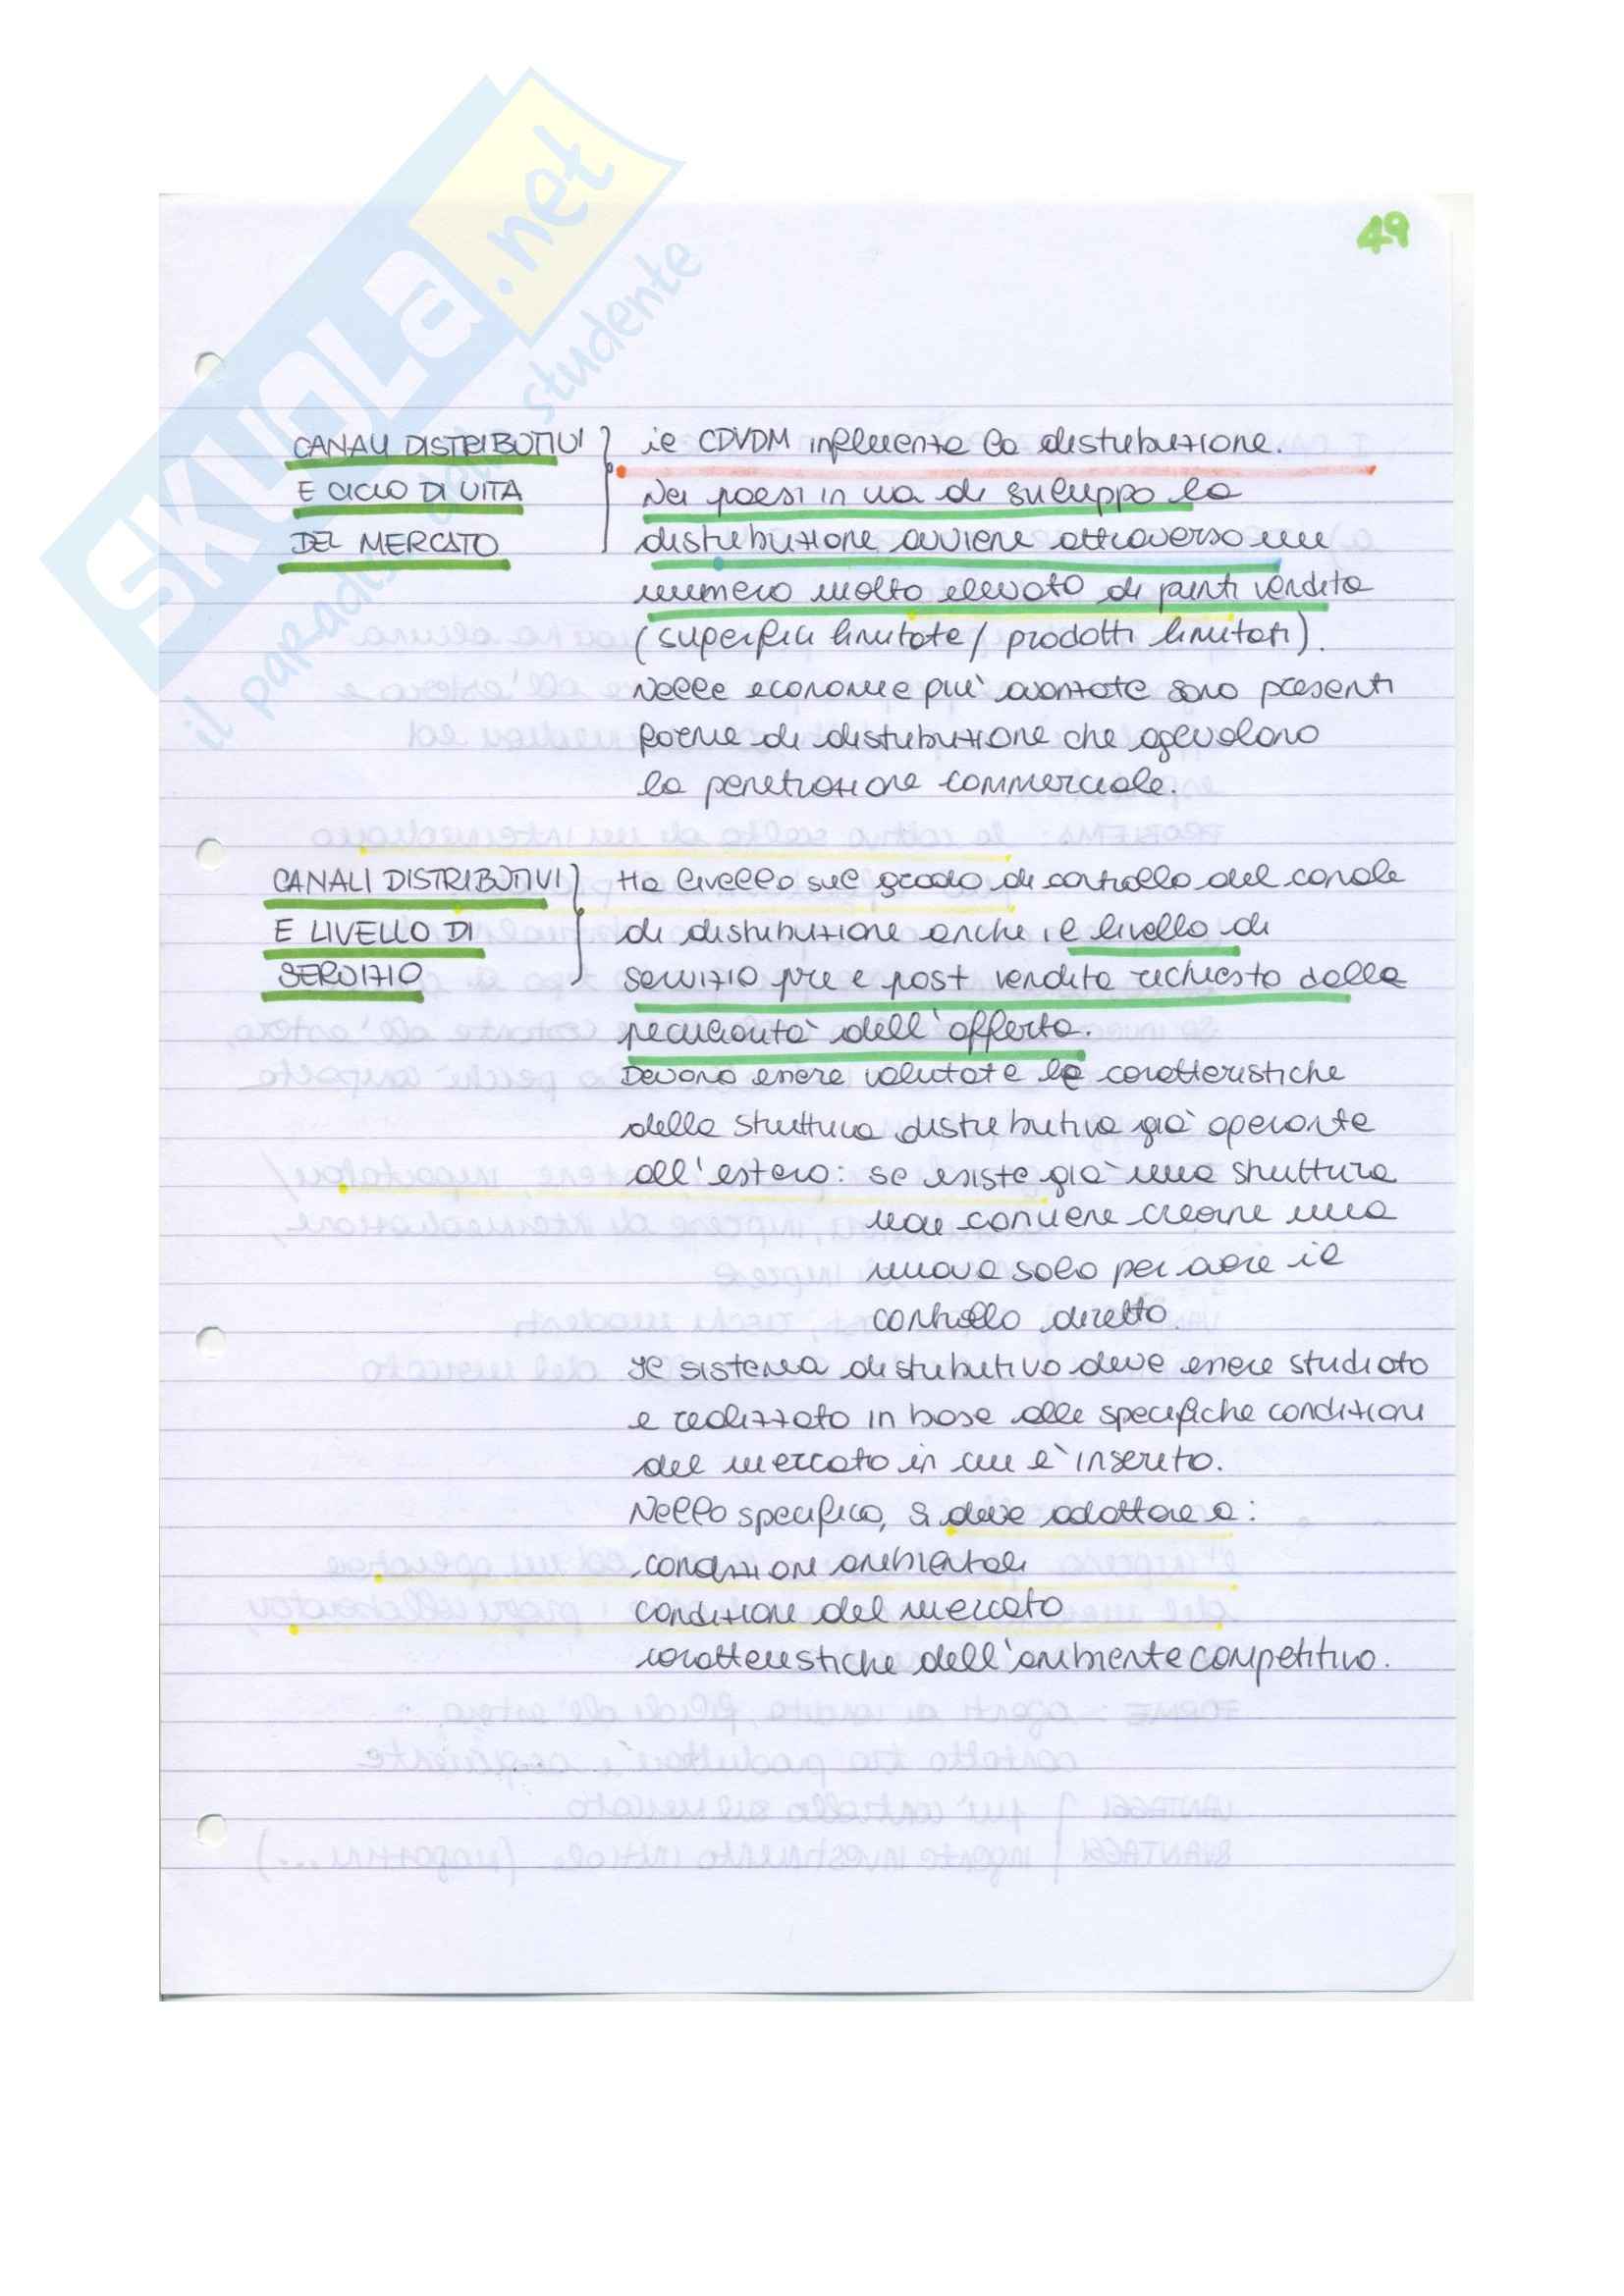 SKUOLA.net
il paradiso dello studente
49
CANALI DISTRIBUTIVI
E CICLO DI VITA
DEL MERCATO
il CDVDM influenza la distribuzione.
Nei paesi in via di sviluppo la
distribuzione avviene attraverso un
numero molto elevato di punti vendita
(superfici limitate / prodotti limitati).
Nelle economie più avanzate sono presenti
forme di distribuzione che agevolano
la penetrazione commerciale.
CANALI DISTRIBUTIVI
E LIVELLO DI
SERVIZIO
Ha livello sul grado di controllo del canale
di distribuzione anche il livello di
servizio pre e post vendita richiesto dalla
peculiarità dell'offerta.
Devono essere valutate le caratteristiche
della struttura distributiva già operante
all'estero: se esiste già una struttura
non conviene crearne una
nuova solo per avere il
controllo diretto.
Il sistema distributivo deve essere studiato
e realizzato in base alle specifiche condizioni
del mercato in cui è inserito.
Nello specifico, si deve adattare a:
condizioni ambientali
condizioni del mercato
caratteristiche dell'ambiente competitivo.